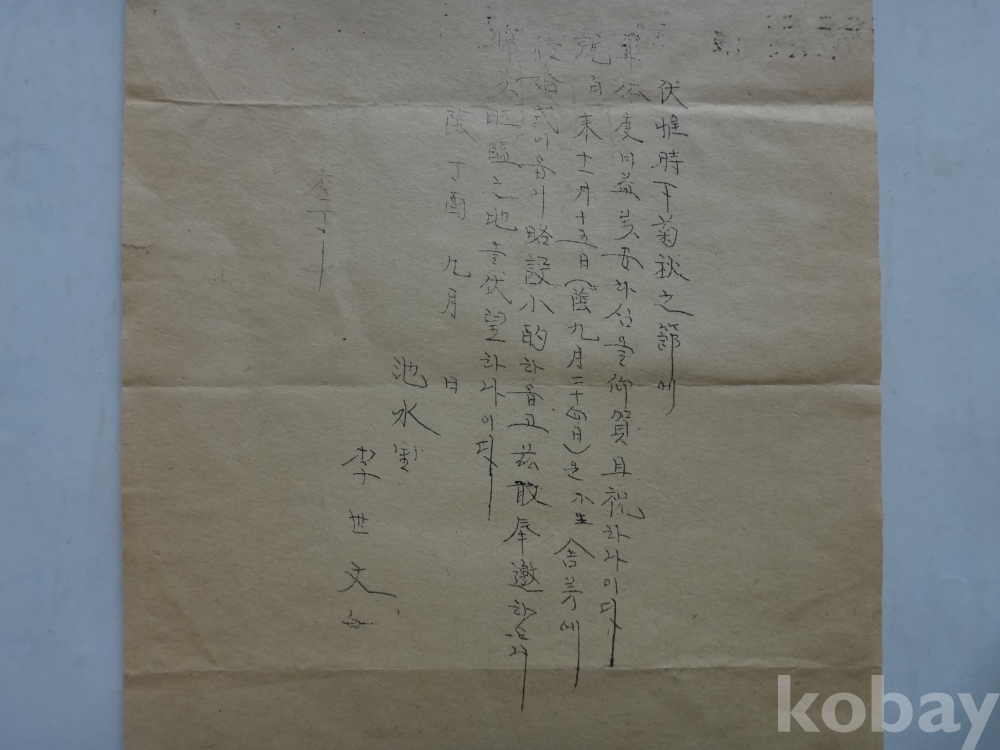 伏惟時下菊秋之節에
度日益 하심을仰賀且祝하나이다
就白來十一月十五日(陰九月二十四日)은小生舍弟에
式이옵기略設小酌하옵고玆敢奉邀하오니
枉臨之地를伏望하나이다
陰丁酉九月 日
池水
李世文
kobay